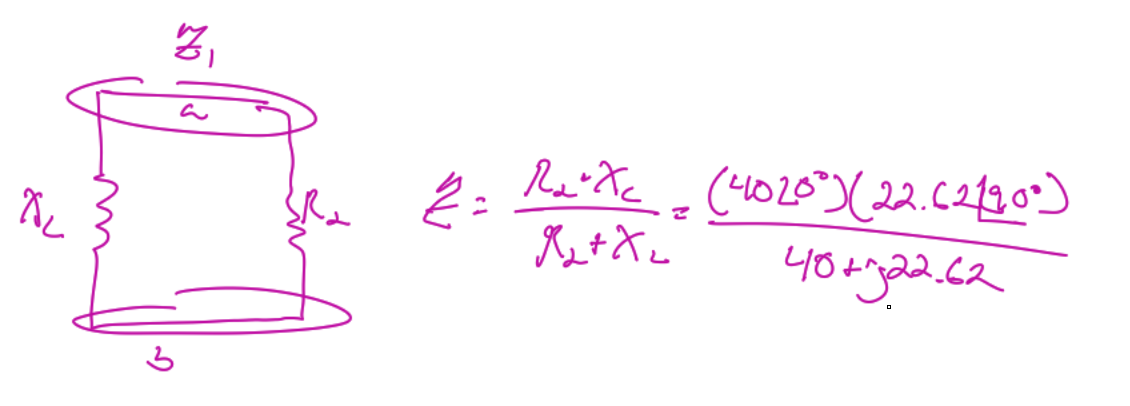 Z₁
a
X_L
R₂
b
Z = (R₂·X_L)/(R₂+X_L) = ((40∠0°)(22.62∠90°))/(40+j22.62)